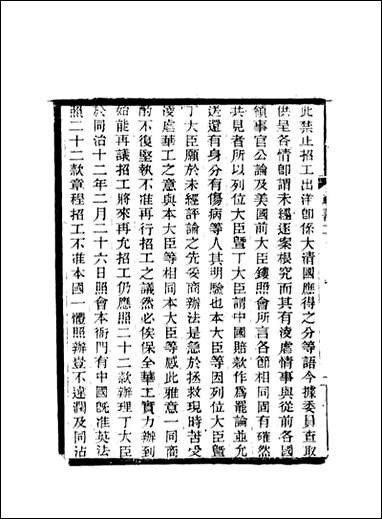 此禁止招工出洋卽係大淸國應得之分等語今據委員查取
供呈各情卽謂未經逐案根究而其有淩虐情事與從前各國
領事官公論及美國前大臣鏤照會所言各節相同固有確然
共見者所以列位大臣曁丁大臣謂中國賠款作爲罷論並允
送還有身分有傷病等人其明驗也本大臣等因列位大臣曁
丁大臣願於未經評論之先妥商辦法是急於拯救現時苦受
淩虐華工之意與本大臣等相同本大臣等感此雅意一同商
酌不復堅執不准再行招工之議然必俟保全華工實力辦到
始能再議招工將來再允招工仍應照二十二款辦理丁大臣
於同治十二年二月二十六日照會本衙門有中國旣准英法
照二十二款章程招工不准本國一體照辦豈不違潤及同沾